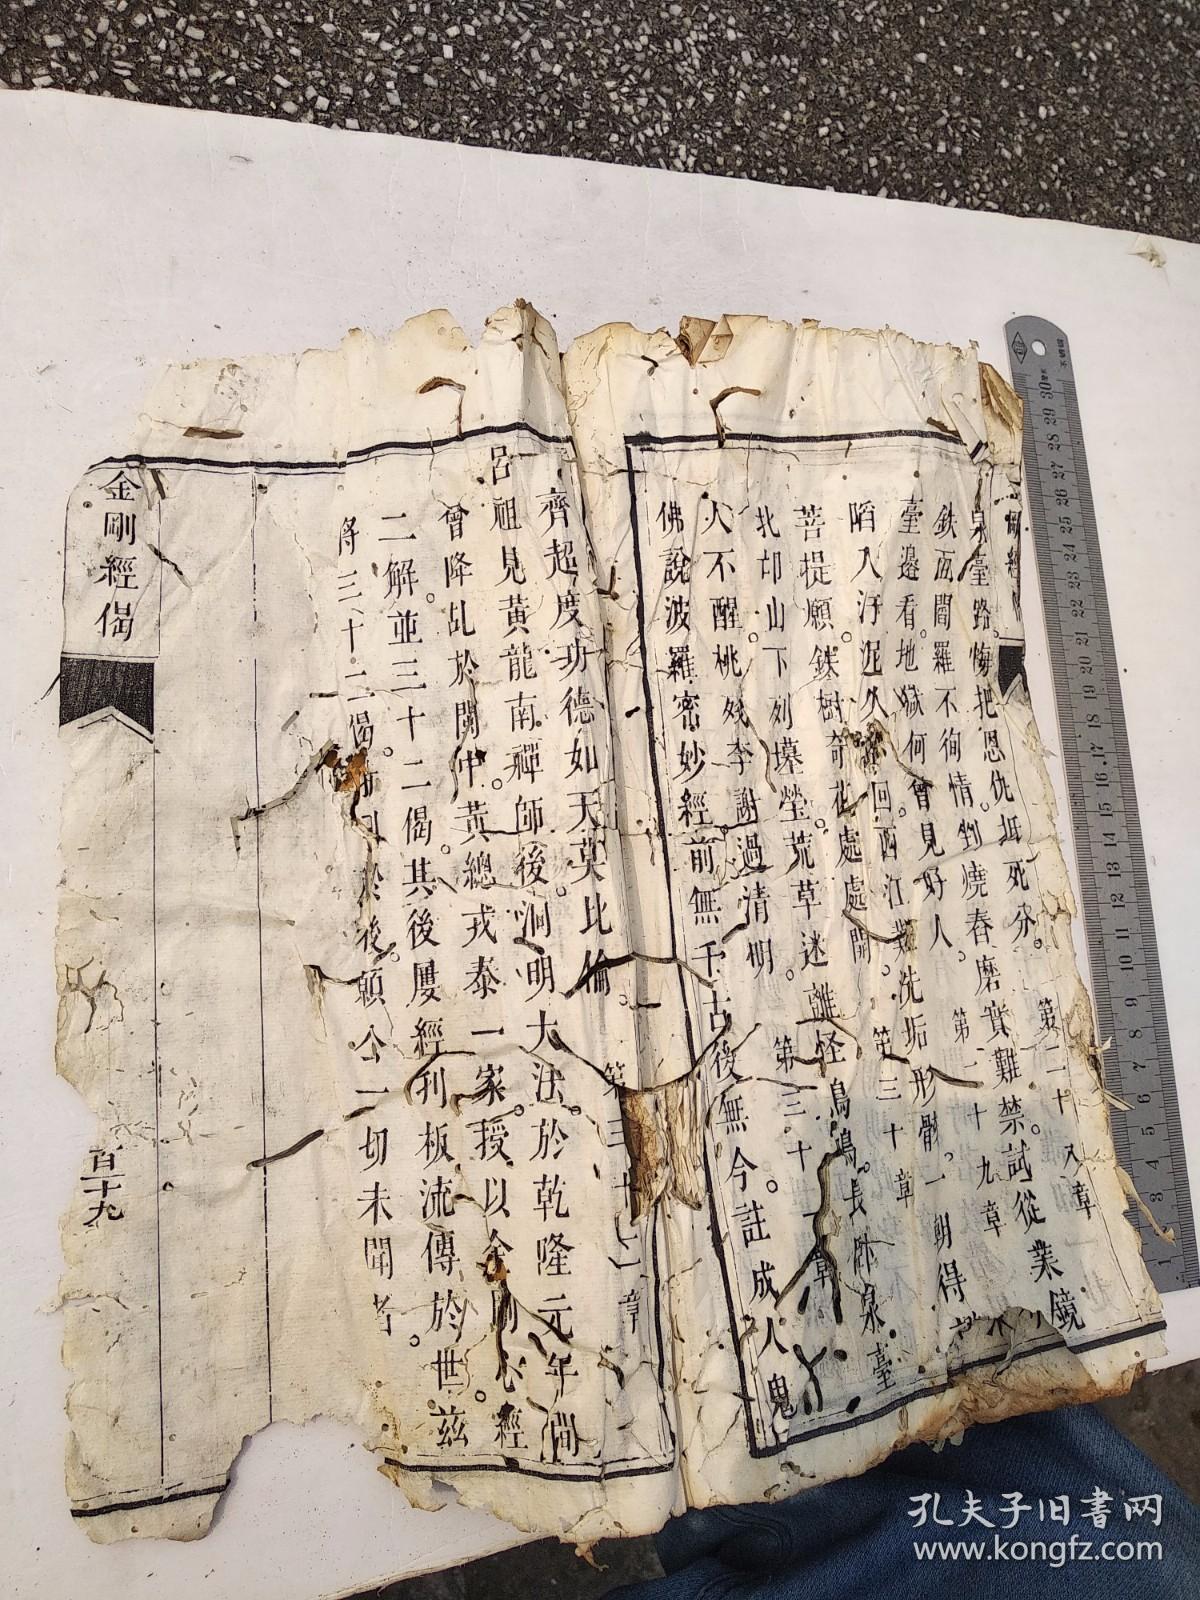 泉臺路。悔把恩仇抵死分。
第二十八章
鉄面閻羅不徇情。剉燒舂磨實難禁。試從業鏡
臺邊看。地獄何曾見好人。
第二十九章
陷入汙泥久 回。西江難洗垢形骸。一朝得
菩提願。鉄樹奇花處處開。
第三十章
北邙山下列墓塋。荒草迷離怪鳥鳴。長卧泉臺
人不醒。桃殘李謝過清明。
第三十一章
佛說波羅密妙經。前無千古後無今。註成人鬼
齊超度。功德如天莫比倫。
第三十二章
呂祖見黃龍南禪師後。洞明大法。於乾隆元年間
曾降乩於閩中。黃總戎泰一家。授以金剛心經
二解並三十二偈。其後屢經刊板流傳於世。茲
將三十二偈。 於後。願今一切未聞者。
金剛經偈
百十九
孔夫子旧书网
www.kongfz.com